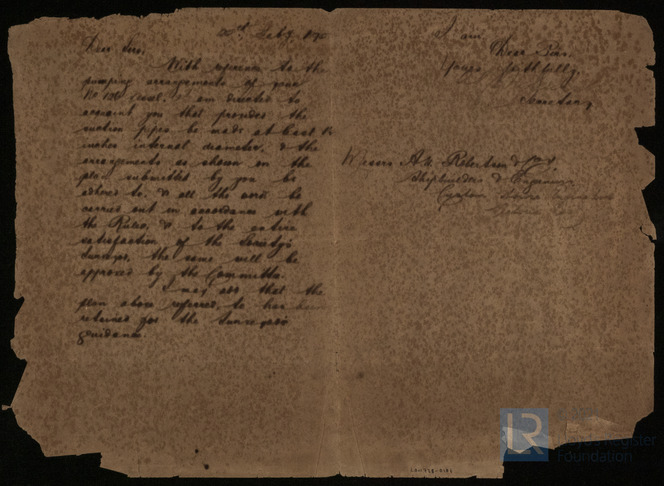 Dear Sirs,
With reference to the
pumping arrangements of your
No vessel, I am directed to
acquaint you that provided the
suction pipes be made at least
inches internal diameter, & the
arrangements as shown on the
plan submitted by you be
adhered to, & all the work be
carried out in accordance with
the Rules, & to the entire
satisfaction of the Society's
Surveyors, the same will be
approved by the Committee.
I may add that the
plan above referred to has been
retained for the Surveyors
guidance.
I am,
Dear Sirs,
Yours faithfully,
Secretary
Messrs Robertson &
Shipbuilders & Engineers
LR
Register
Foundation